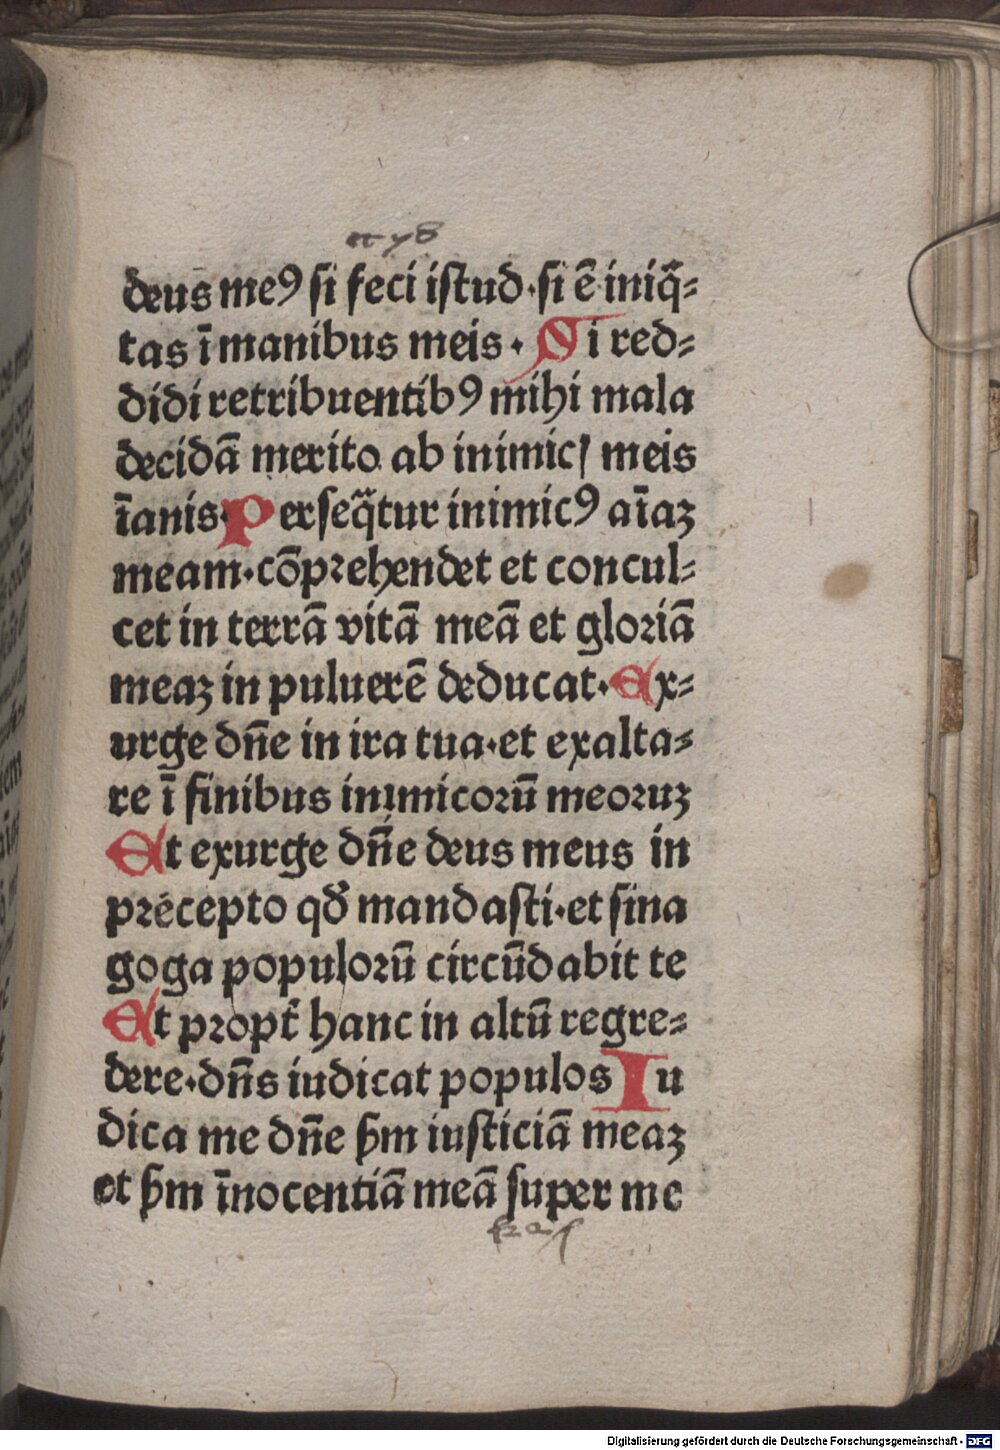 deus meꝰ si feci istud·si ē iniq̄⸗
tas ī manibus meis· Si red⸗
didi retribuentibꝰ mihi mala
decidā merito ab inimicꝭ meis
īanis·Perseq̄tur inimicꝰ aīaꝫ
meam·cōprehendet et concul⸗
cet in terrā vitā meā et gloriā
meaꝫ in puluerē deducat·Ex⸗
urge dn̄e in ira tua·et exalta⸗
re ī finibus inimicorū meoruꝫ
Et exurge dn̄e deus meus in
precepto qđ mandasti·et sina
goga populorū circūdabit te
Et propt̄ hanc in altū regre⸗
dere·dn̄s iudicat populos Iu
dica me dn̄e ẜm iusticiā meaꝫ
et ẜm īnocentiā meā super me
Digitalisierung gefördert durch die Deutsche Forschungsgemeinschaft - DFG